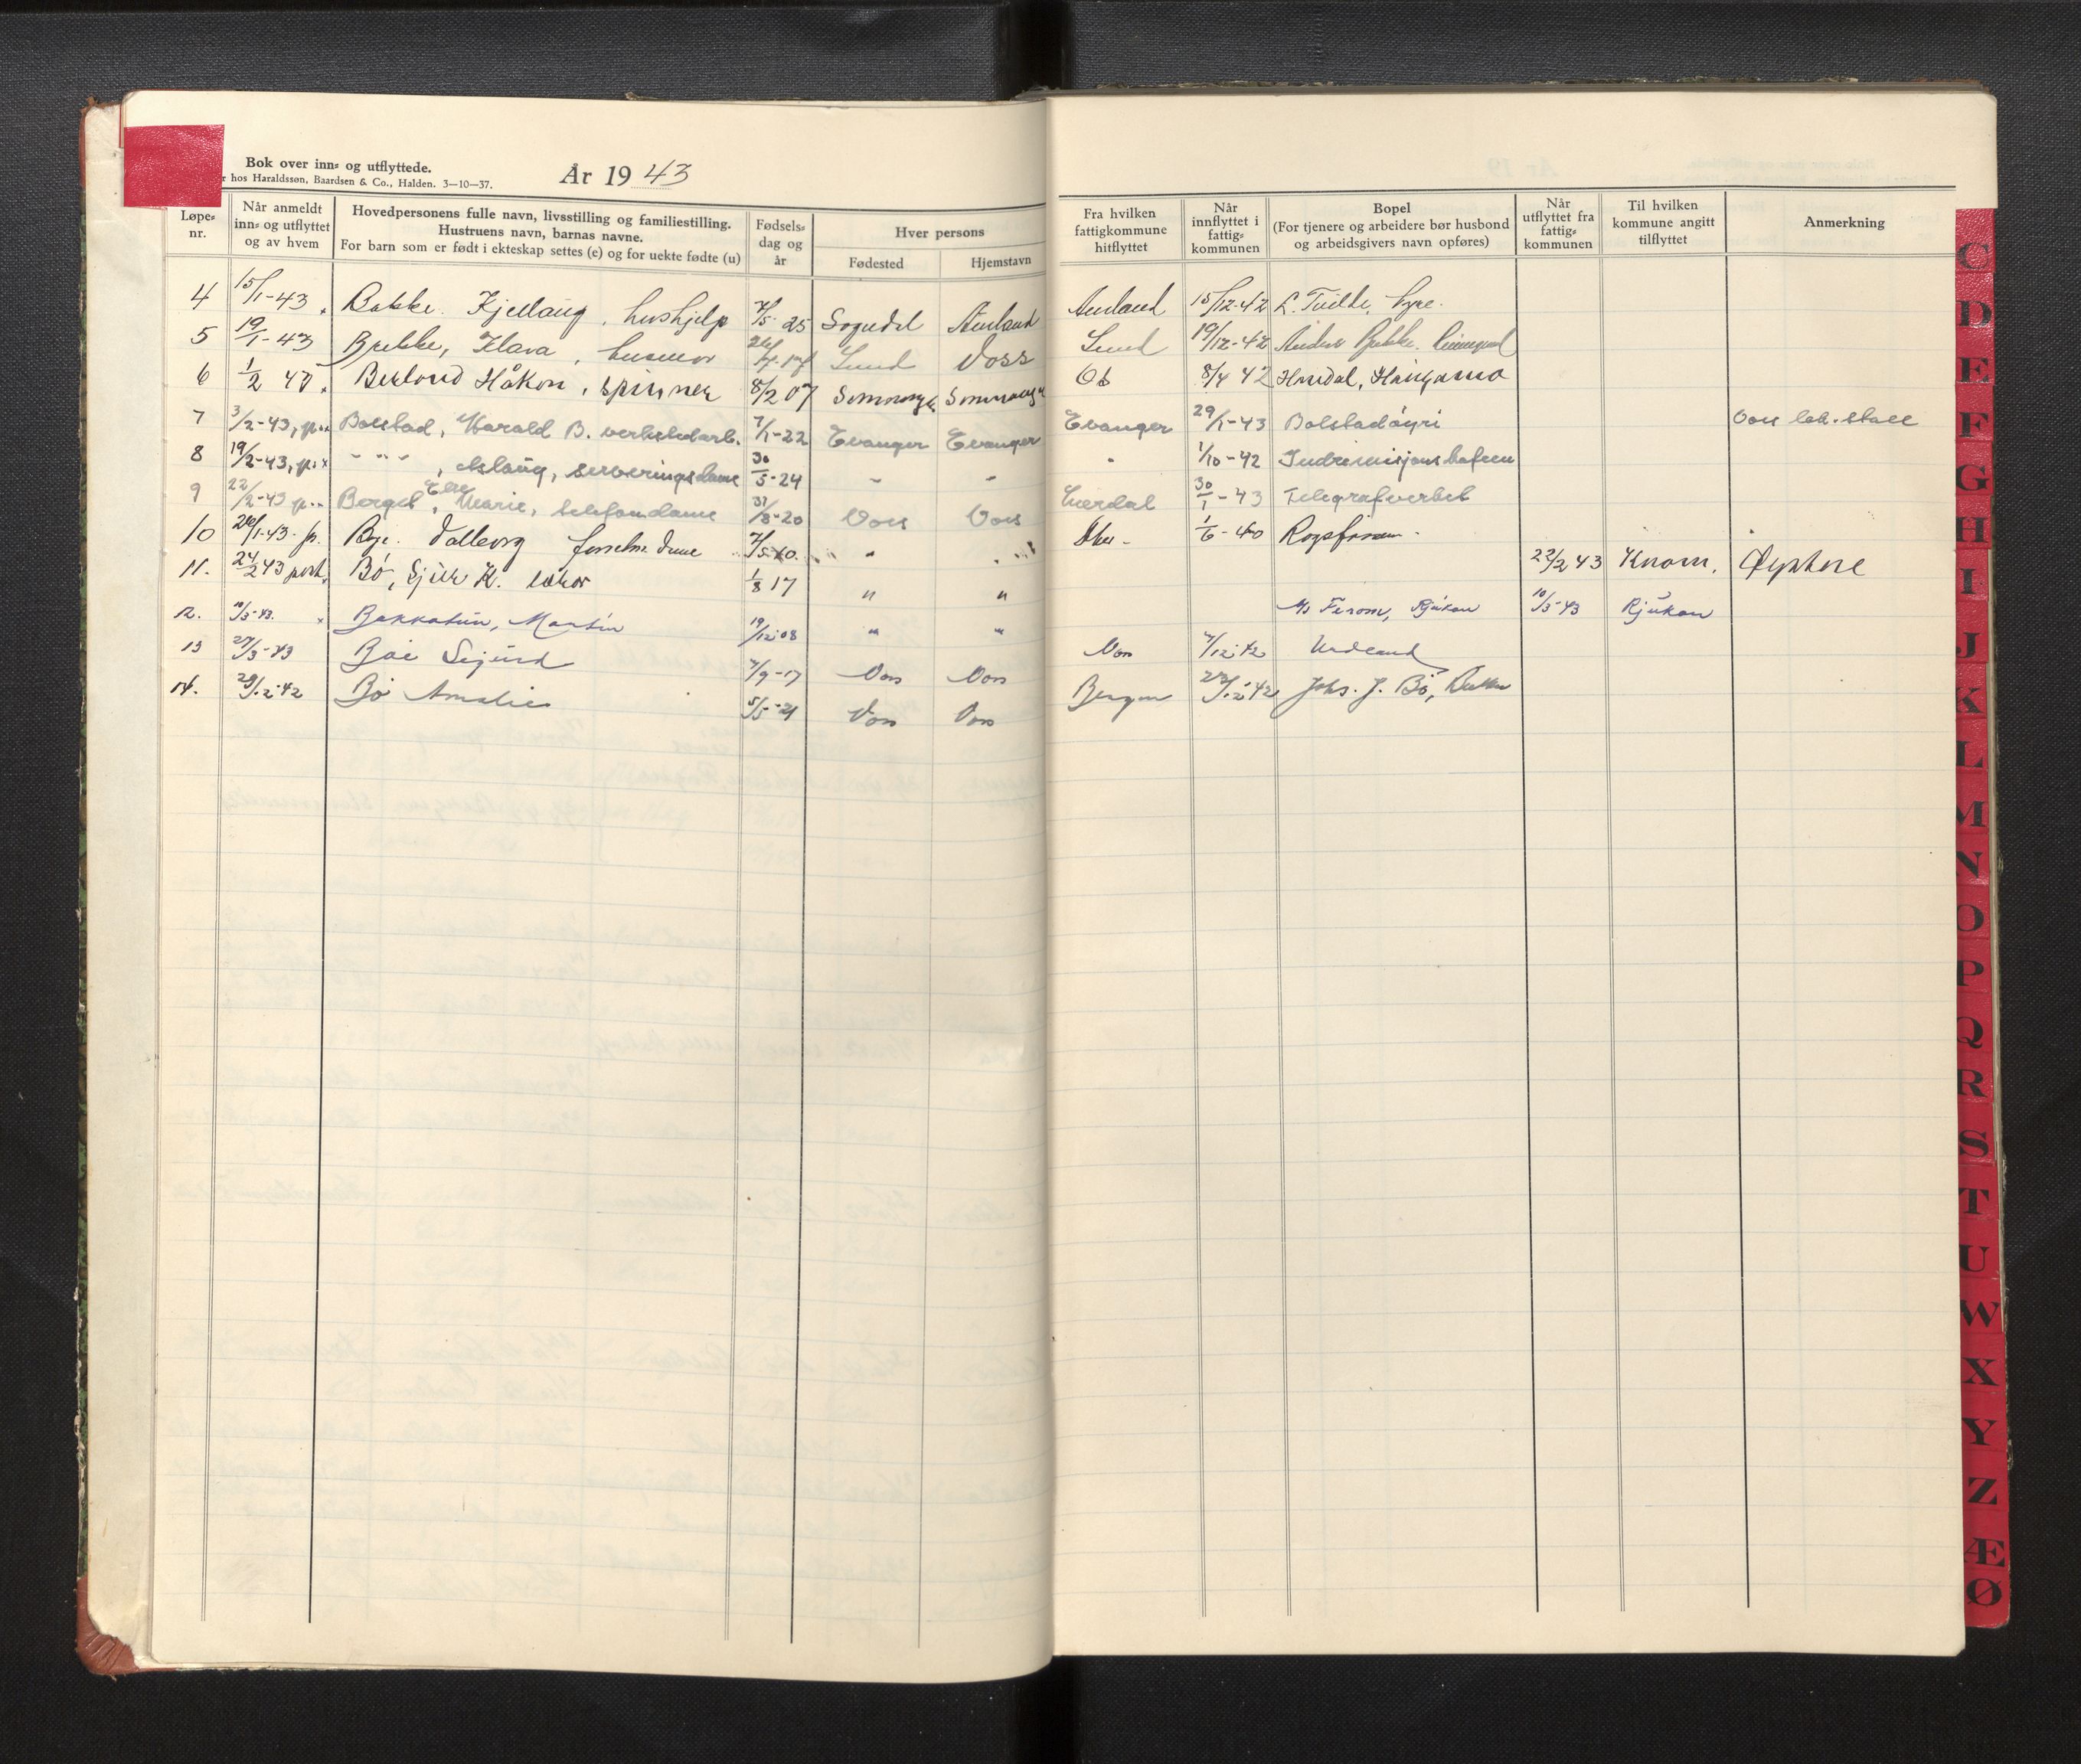 Bok over inn- og utflyttede.
r hos Haraldssøn, Baardsen & Co., Halden. 3-10-37.
År 1943
Løpe-nr.
Når anmeldt inn- og utflyttet og av hvem
Hovedpersonens fulle navn, livsstilling og familiestilling. Hustruens navn, barnas navne. For barn som er født i ekteskap settes (e) og for uekte fødte (u)
Fødselsdag og år
Hver persons
Fødested
Hjemstavn
Fra hvilken fattigkommune hitflyttet
Når innflyttet i fattig-kommunen
Bopel (For tjenere og arbeidere bør husbond og arbeidsgivers navn opføres)
Når utflyttet fra fattig-kommunen
Til hvilken kommune angitt tilflyttet
Anmerkning
4 15/1-43 Bakke. Kjellaug, hushjelp 7/5 25 Sogndal Aurland Aurland 15/12-42 L. Tvilde,
5 19/1-43 Brekke, Klara, husmor Lund Voss Lund 19/12-42 Anders Brekke.
6 1/2 43. Håkon, spinner 8/2 07 Os 8/4 42
7 3/2-43, p. Bolstad, Harald B. verkstedarb. 7/1-22 Evanger Evanger Evanger 29/1-43 Bolstadøyri Voss lab. stall
8 19/2-43, p. " " " , Aslaug, serveringsdame 30/5-24 " " " 1/10-42 Indremisjonskafeen
9 22/2-43 p. Berget, Else Marie, telefondame 31/8-20 Voss Voss Lærdal 30/1-43 Telegrafverket
10 Valborg " " 1/6-40
11. 24/2 43 post. Bø, K. 1/8 17 " " 22/2 43 Kvam,
12. 10/3-43. Bakketun, Martin 19/12-08 " " Rjukan 10/3-43 Rjukan
13 27/3-43 Bøe Sigurd 7/9-17 Voss Voss Voss 7/12-42 Urdland
14. Bø Amalie 5/5-21 Voss Voss Bergen Johs. J. Bø,
C
D
E
F
G
H
I
J
K
L
M
N
O
P
Q
R
S
T
U
W
X
Y
Z
Æ
Ø